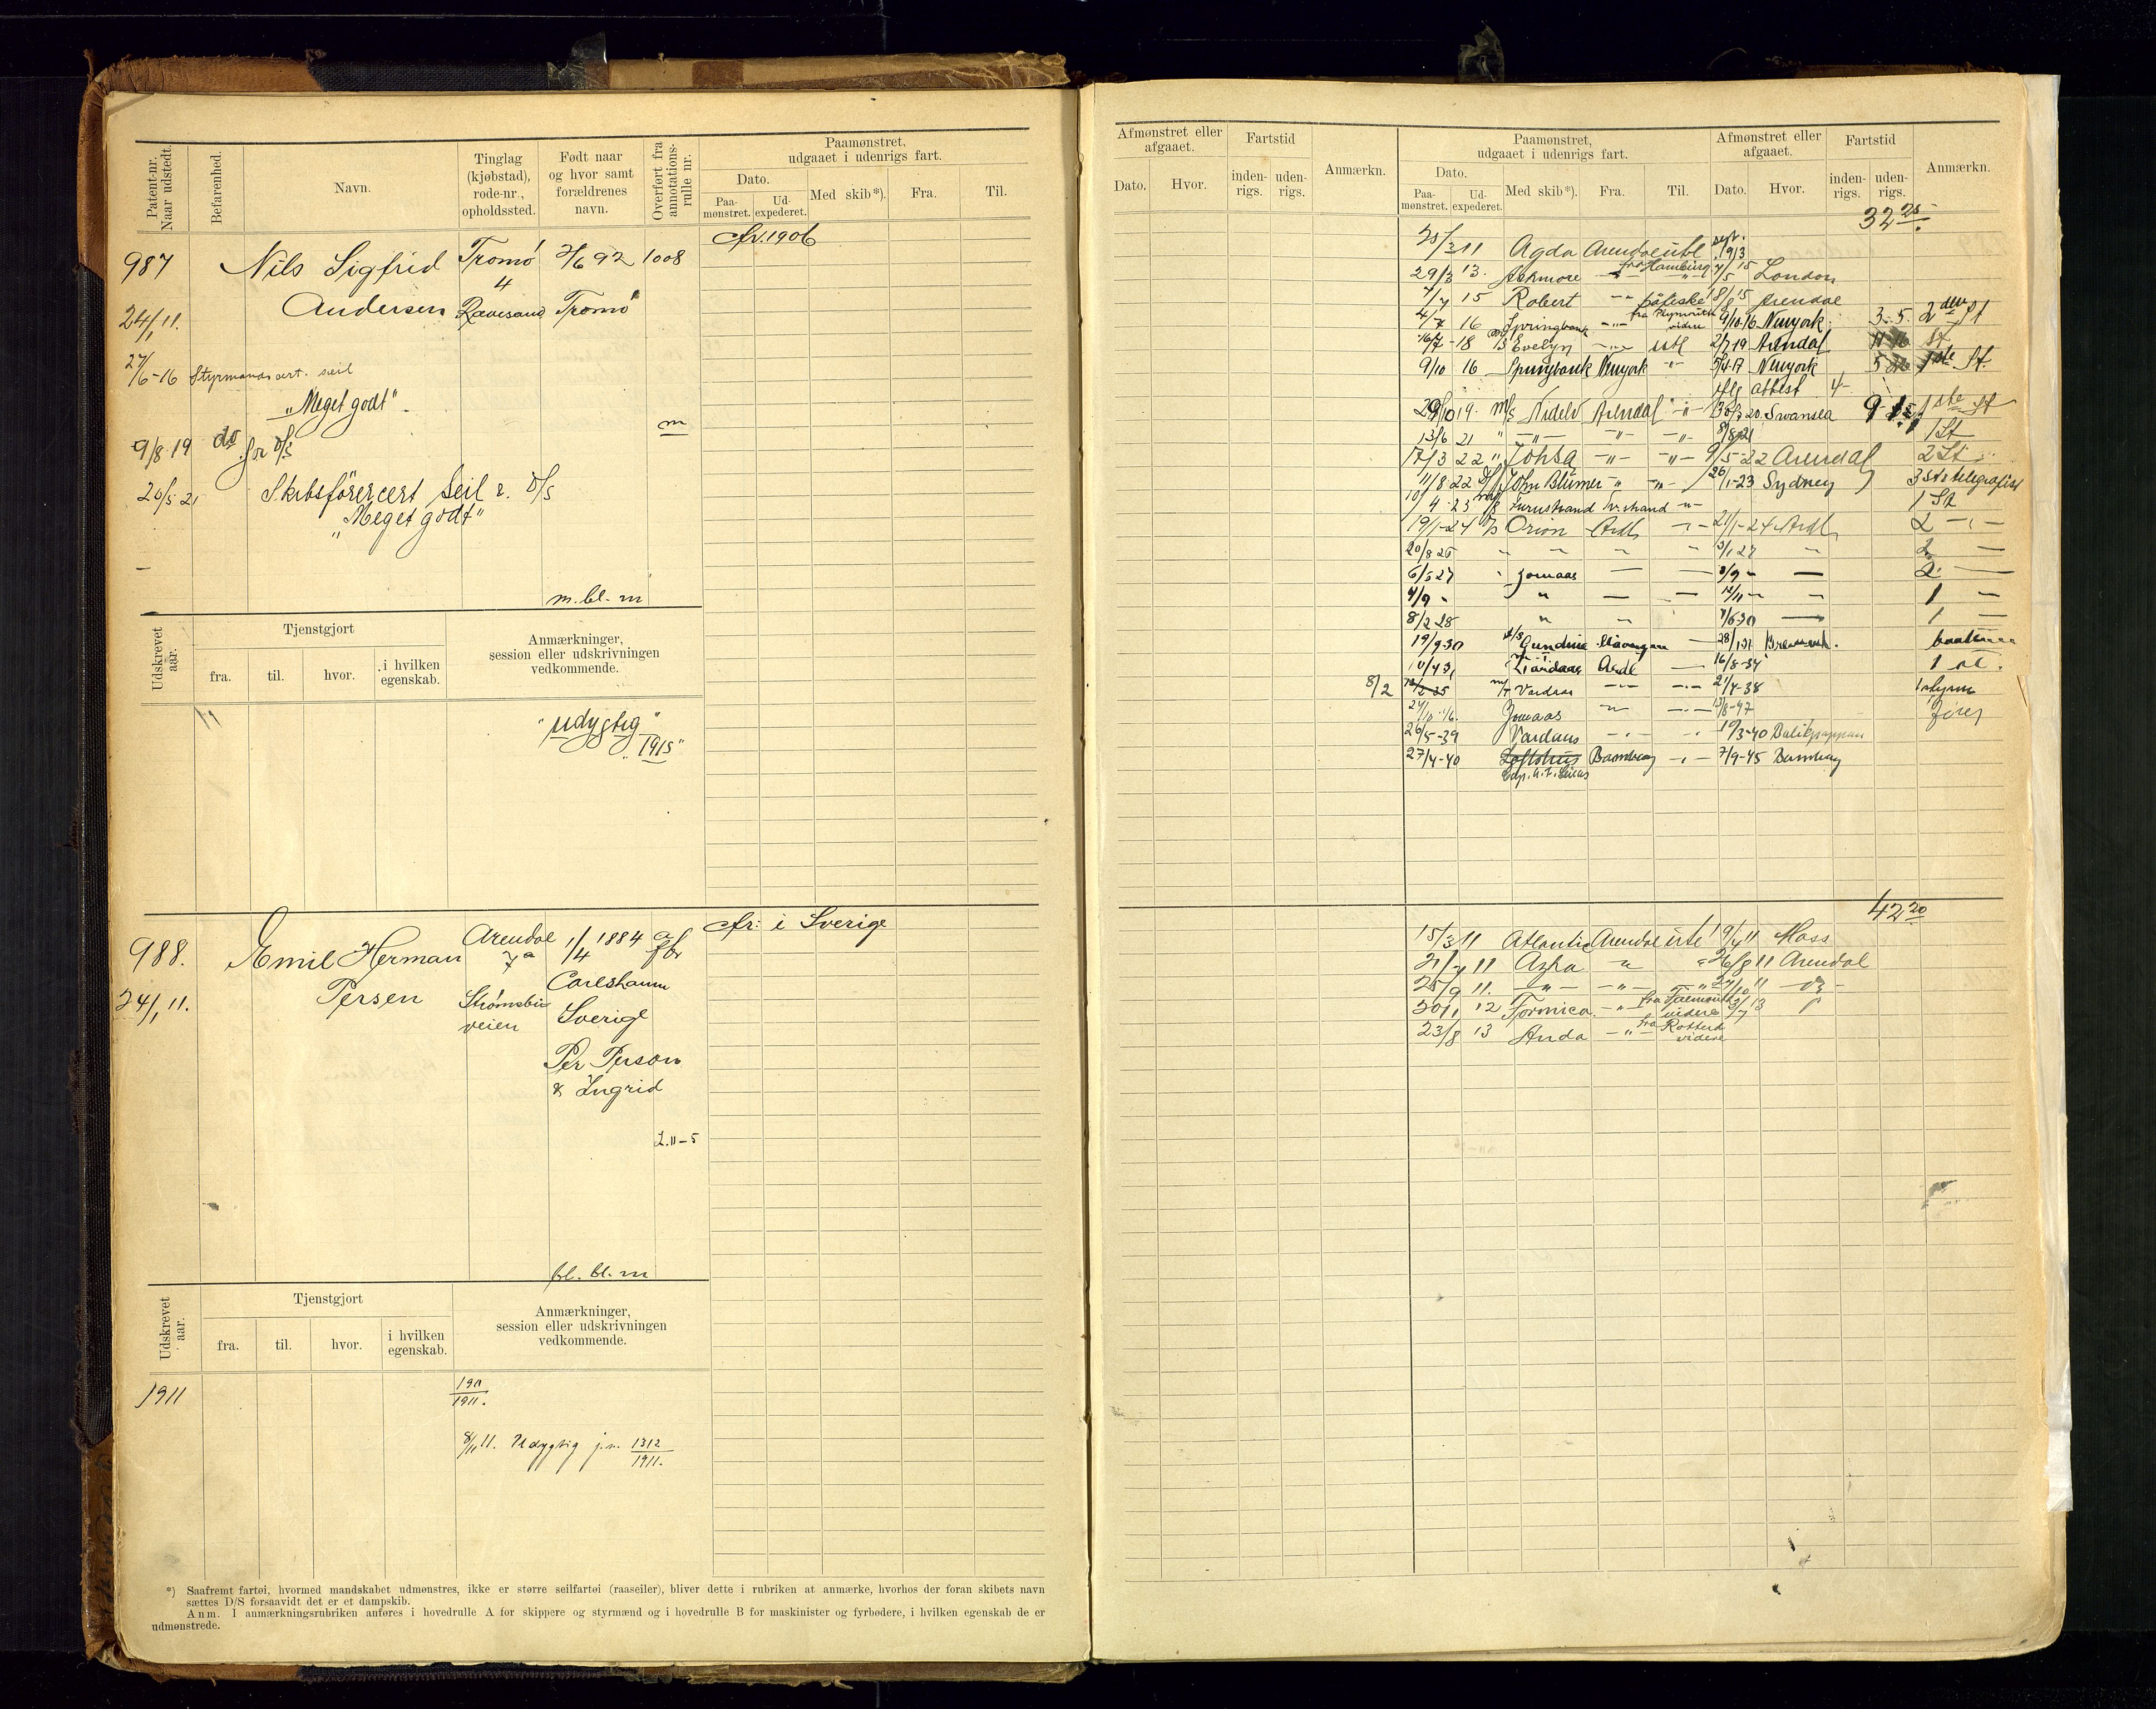 Patent-nr. Naar udstedt.
Befarenhed.
Navn.
Tinglag (kjøbstad), rode-nr., opholdssted.
Født naar og hvor samt forældrenes navn.
Overført fra annotations-rulle nr.
Paamønstret, udgaaet i udenrigs fart.
Dato.
Paa-mønstret.
Ud-expederet.
Med skib*).
Fra.
Til.
987
Nils Sigfrid
Tromø
2/6 92
1008
fr. 1906
4
24/1 11.
Andersen
Rævesand
Tromø
27/6-16 Styrmandscert. seil
"Meget godt"
m
9/8 19 do for D/S
20/5 21 Skibsförercert Seil & D/S
"Meget godt"
m. bl. m
Udskrevet aar.
Tjenstgjort
fra.
til.
hvor.
i hvilken egenskab.
Anmærkninger, session eller udskrivningen vedkommende.
"udygtig"
"1915"
988.
Emil Herman
Arendal
1/4 1884
fr: i Sverige
7a
24/1 11.
Persen
Strømsbu
veien
Carlshamn
Sverige
Per Person
& Ingrid
L. 11-5
bl. bl. m
Udskrevet aar.
Tjenstgjort
fra.
til.
hvor.
i hvilken egenskab.
Anmærkninger, session eller udskrivningen vedkommende.
1911
190/1911.
8/11 11. Udygtig j.n. 1312/1911.
*) Saafremt fartøi, hvormed mandskabet udmønstres, ikke er større seilfartøi (raaseiler), bliver dette i rubriken at anmærke, hvorhos der foran skibets navn
sættes D/S forsaavidt det er et dampskib.
Anm. I anmærkningsrubriken anføres i hovedrulle A for skippere og styrmænd og i hovedrulle B for maskinister og fyrbødere, i hvilken egenskab de er
udmønstrede.
Afmønstret eller afgaaet.
Dato.
Hvor.
Fartstid
inden-rigs.
uden-rigs.
Anmærkn.
Paamønstret, udgaaet i udenrigs fart.
Dato.
Paa-mønstret.
Ud-expederet.
Med skib*).
Fra.
Til.
Afmønstret eller afgaaet.
Dato.
Hvor.
Fartstid
inden-rigs.
uden-rigs.
Anmærkn.
32 25
25/3 11 Agda Arendal utl sept. 1913
29/3 13. Ashmore -"- fra Hamburg 4/5 15 London
7/7 15 Robert -"- påfiske 8/8 15 Arendal
4/7 16 Springbank -"- fra Plymouth videre 9/10-16 Newyork 3-5. 2den St
16/7-18 Evelyn -"- utl 2/7 19 Arendal St
9/10 16 Springbank Newyork -"- 5/4-17 Newyork 5 1ste St.
iflg attest 4-
29/10 19. M/S Nidelv Arendal -"- 30/3 20. Swansea 9 1ste St
13/6 21 " -"- -"- -"- 8/8 21 1 St
17/3 22 " Johsa -"- -"- 9/5-22 Arendal 2 St
11/8 22 John Blumer " -"- 26/1-23 Sydney 3 St & telegrafist
10/4-23 Furustrand Kr.strand -"- 1 St
19/1-24 D/S Orion Ardl -"- 21/1-24 Ardl 2 -"-
20/8 26 " " " " 3/1 27 " 2 -
6/5 27 " Jomaas - - 8/9 " - 2 -
9/9 " " - - 12/11 " " 1 -
8/2 28 " " 7/6 30 - 1 -
19/9 30 Gundine Stavanger - 28/1 31
10/4 31 Ardl - 16/8-34 1 st.
8/2 12/2-35 M/T Vardaas -"- -"- 21/4-38 1 styrm
24/10 46. Jomaas -"- -"- 13/8-47 fører
26/5-39 Vardaas -"- " 19/3-40 Balikpappan
27/4-40 Loftshus Bombay -"- 7/9-45 Bombay
42 20
15/3 11 Atlantic Arendal utl 19/4 11 Moss
21/7 11 Azha " " 26/8 11 Arendal
25/9 11. -"- -"- -"- 24/10 11
30/1 12 Formica -"- fra Falmouth videre 2/7 13
23/8 13 Anda -"- fra Rotterd videre